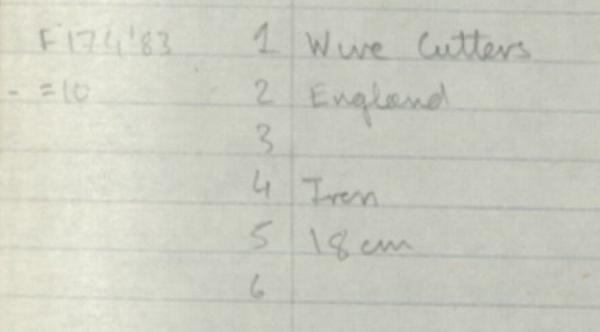 F174'83 1 Wire Cutters
- =10 2 England
3
4 Iron
5 18cm
6